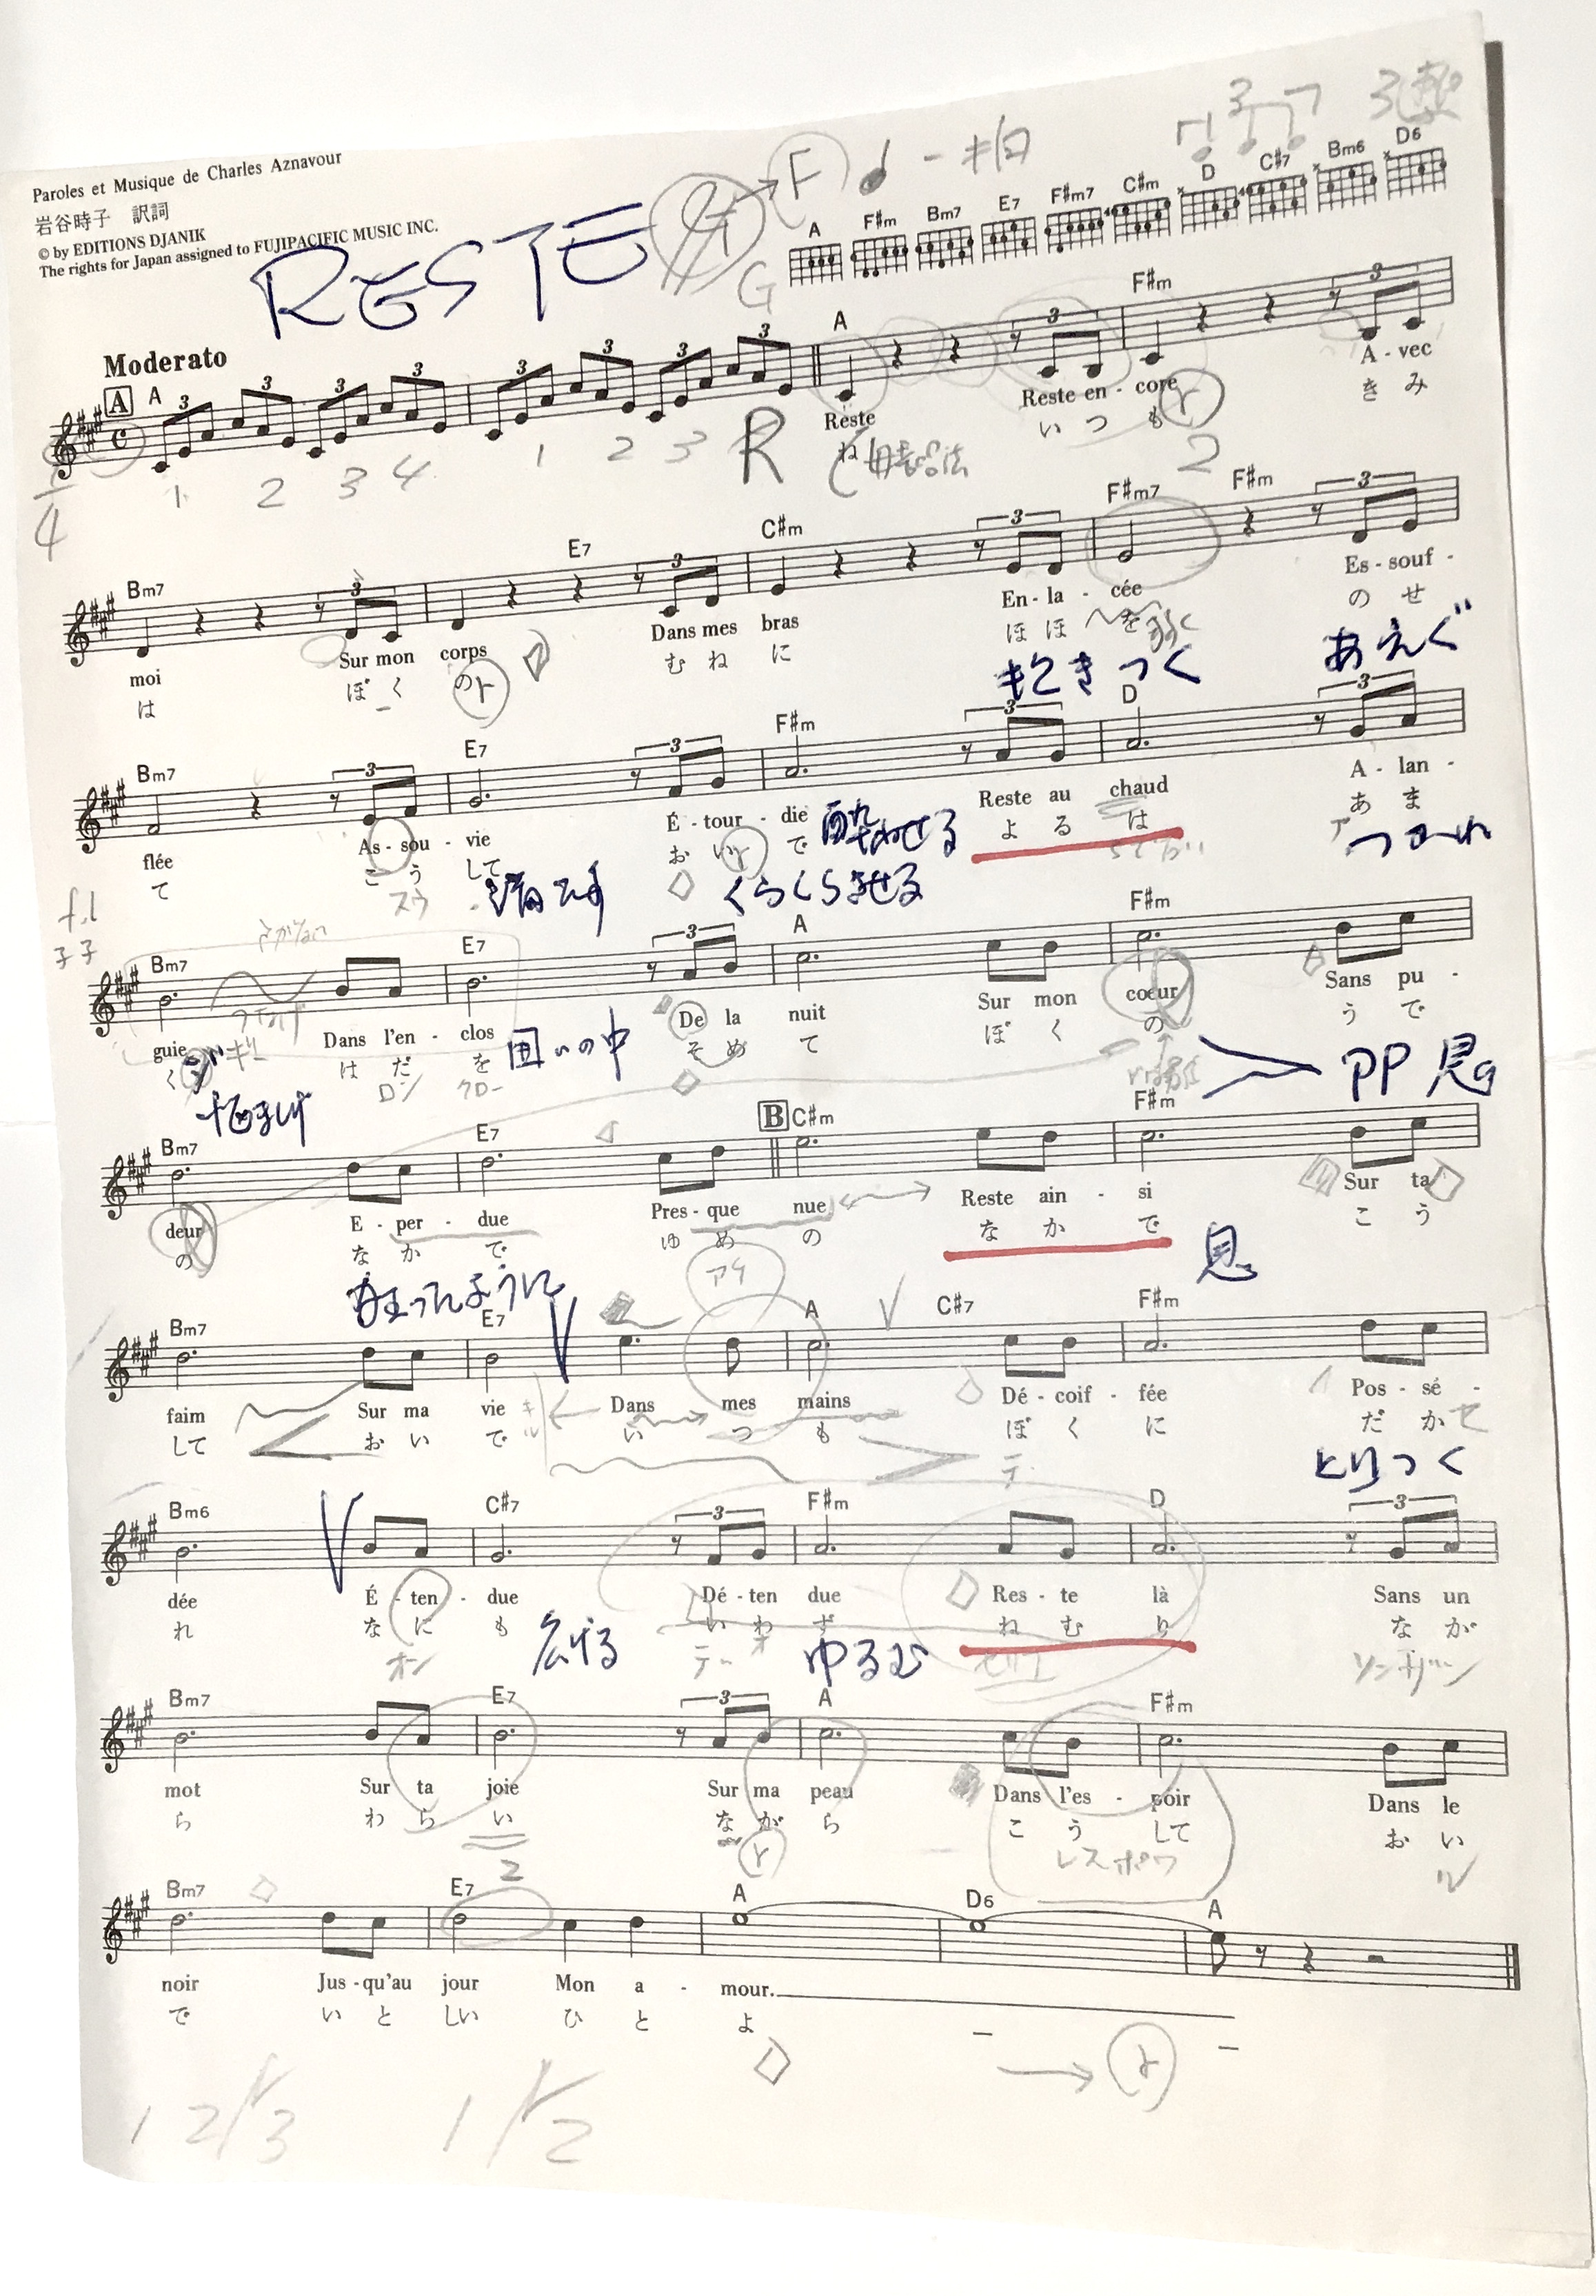 Paroles et Musique de Charles Aznavour
岩谷時子 訳詞
© by EDITIONS DJANIK
The rights for Japan assigned to FUJIPACIFIC MUSIC INC.
RESTE
F
G
A F♯m Bm7 E7 F♯m7 C♯m D C♯7 Bm6 D6
Moderato
A A A F♯m
3 3 3 3 3 3 3 3 3
Reste Reste en - core A - vec
ね いつも きみ
4 1 2 3 4 1 2 3 R 2
Bm7 E7 C♯m F♯m7 F♯m
3 3 3 3
moi Sur mon corps Dans mes bras En - la - cée Es - souf -
は ぼくの むねに ほほを のせ
抱きつく あえぐ
Bm7 E7 F♯m D
3 3 3 3
flée As - sou - vie É - tour - die Reste au chaud A - lan -
て こうして おいで よるは あま
酔わせる つかれ
くらくらさせる
Bm7 E7 A F♯m
3
guie Dans l'en - clos De la nuit Sur mon coeur Sans pu -
く はだを そめて ぼくの うで
囲いの中
ロン クロー
PP 息
悩ます
Bm7 E7 B C♯m F♯m
deur E - per - due Pres - que nue Reste ain - si Sur ta
の なかで ゆめの なかで こう
狂ったように 息
Bm7 E7 A C♯7 F♯m
faim Sur ma vie Dans mes mains Dé - coif - fée Pos - sé -
して おいで いつも ぼくに だか
とりつく
Bm6 C♯7 F♯m D
3 3
dée É - ten - due Dé - ten due Res - te là Sans un
れ なにも いわず ねむり なが
広げる ゆるむ
オン
Bm7 E7 A F♯m
3
mot Sur ta joie Sur ma peau Dans l'es - poir Dans le
ら わらい ながら こうして おい
2 レスポワ
Bm7 E7 A D6 A
noir Jus - qu'au jour Mon a - mour.
で いとしい ひとよ
1 2/3 1/2